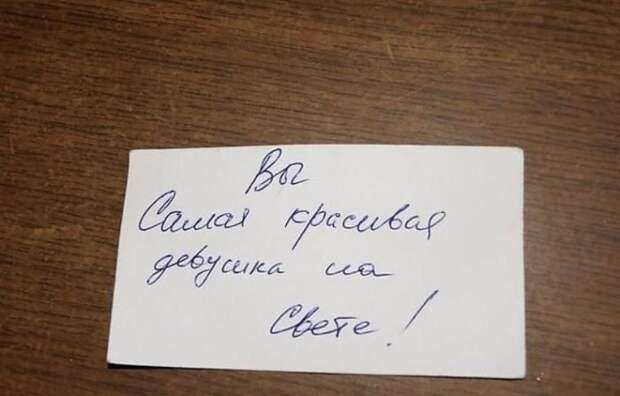 Вы
Самая красивая
девушка на
Свете!